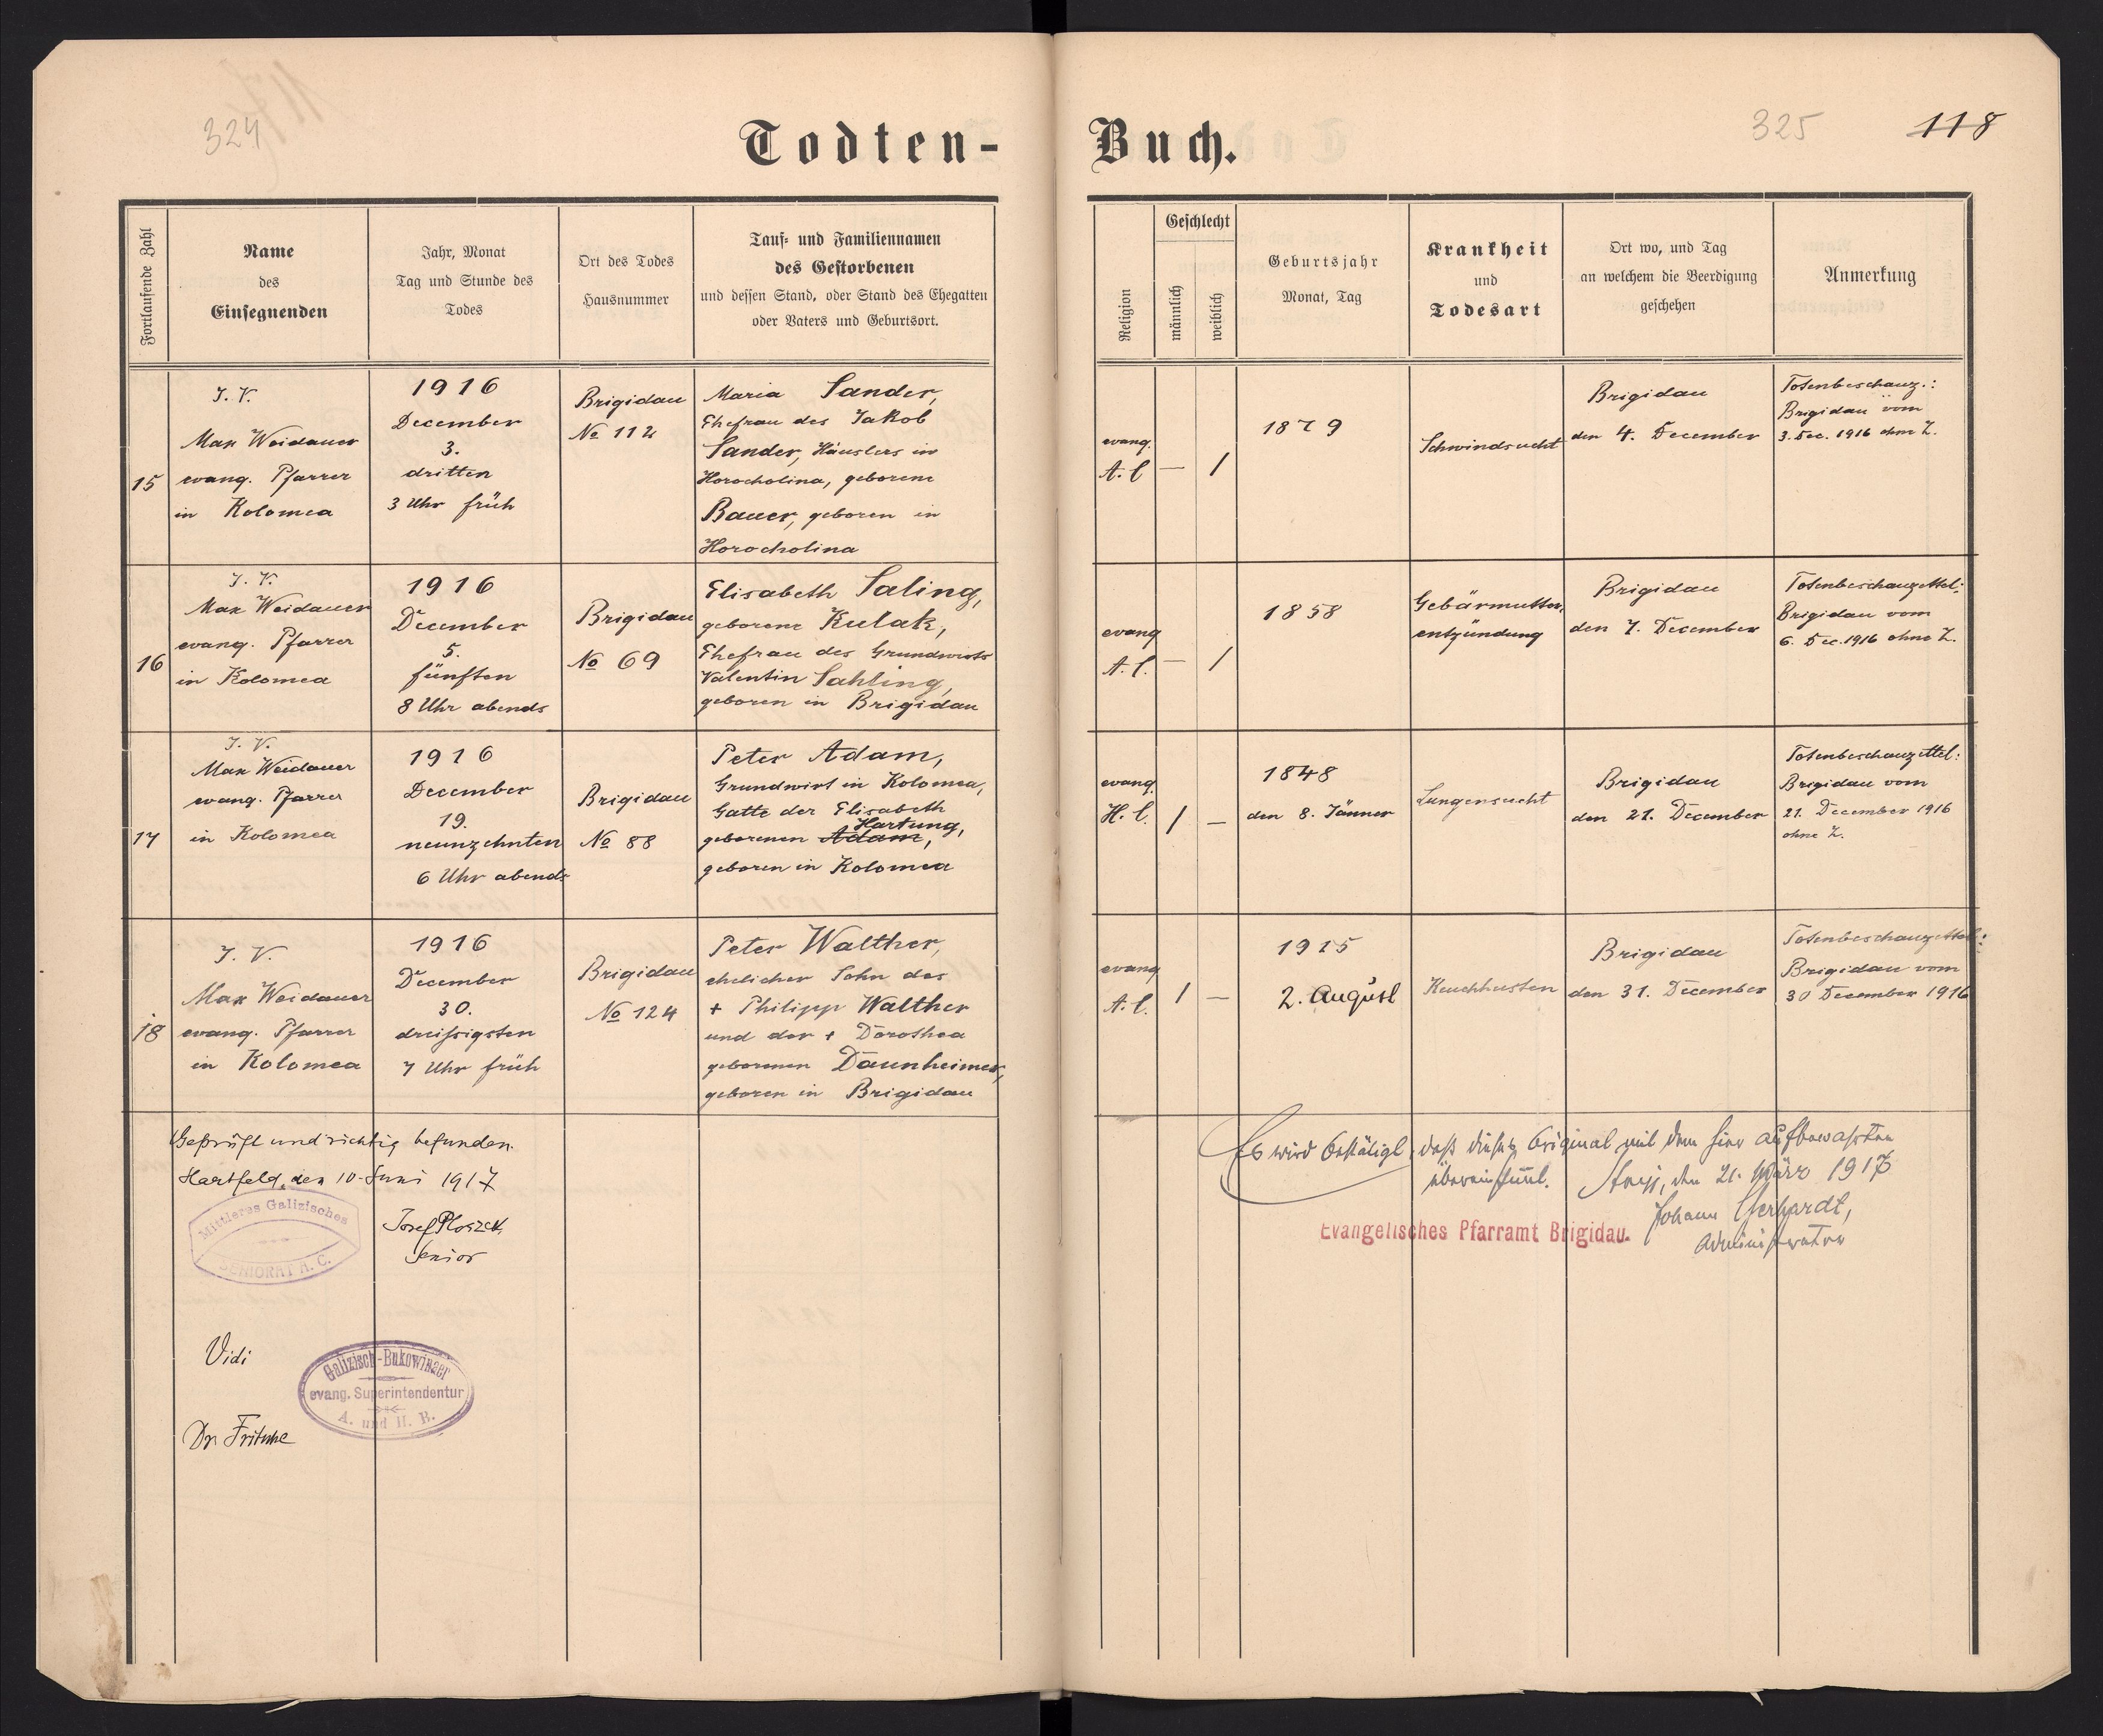 324
325
118
Todten-
Buch.
Fortlaufende Zahl
Name
des
Einsegnenden
Jahr, Monat
Tag und Stunde des
Todes
Ort des Todes
Hausnummer
Tauf- und Familiennamen
des Gestorbenen
und dessen Stand, oder Stand des Ehegatten
oder Vaters und Geburtsort.
Religion
Geschlecht
männlich
weiblich
Geburtsjahr
Monat, Tag
Krankheit
und
Todesart
Ort wo, und Tag
an welchem die Beerdigung
geschehen
Anmerkung
15
I. V.
Max Weidauer
evang. Pfarrer
in Kolomea
1916
December
3.
dritten
3 Uhr früh
Brigidau
No 112
Maria Sander,
Ehefrau des Jakob
Sander, Häuslers in
Horocholina, geborene
Bauer, geboren in
Horocholina
evang.
A. C
— 1
1879
Schwindsucht
Brigidau
den 4. December
Totenbeschauz.:
Brigidau vom
3. Dec. 1916 ohne Z.
16
I. V.
Max Weidauer
evang. Pfarrer
in Kolomea
1916
December
5.
fünften
8 Uhr abends
Brigidau
No 69
Elisabeth Saling,
geborene Kulak,
Ehefrau des Grundwirts
Valentin Sahling,
geboren in Brigidau
evang
A. C.
— 1
1858
Gebärmutter-
entzündung
Brigidau
den 7. December
Totenbeschauzettel:
Brigidau vom
6. Dec. 1916 ohne Z.
17
I. V.
Max Weidauer
evang. Pfarrer
in Kolomea
1916
December
19.
neunzehnten
6 Uhr abends
Brigidau
No 88
Peter Adam,
Grundwirt in Kolomea,
Gatte der Elisabeth
Hartung,
geborenen Adam,
geboren in Kolomea
evang.
H. C.
1 —
1848
den 8. Jänner
Lungensucht
Brigidau
den 21. December
Totenbeschauzettel:
Brigidau vom
21. December 1916
ohne Z.
18
I. V.
Max Weidauer
evang. Pfarrer
in Kolomea
1916
December
30.
dreissigsten
7 Uhr früh
Brigidau
No 124
Peter Walther,
ehelicher Sohn des
+ Philipp Walther
und der + Dorothea
geborenen Daunheimer,
geboren in Brigidau
evang
A. C.
1 —
1915
2. August
Keuchhusten
Brigidau
den 31. December
Totenbeschauzettel:
Brigidau vom
30 December 1916
Geprüft und richtig befunden.
Hartfeld, den 10. Juni 1917
Mittleres Galizisches
SENIORAT A. C.
Josef Ploszek
Senior
Es wird bestätigt, daß dieses Original mit dem hier aufbewahrten
übereinstimmt. Stryj, den 21. März 1917
Johann Gerhardt,
Administrator
Evangelisches Pfarramt Brigidau.
Vidi
Galizisch-Bukowinaer
evang. Superintendentur
A. und H. B.
Dr. Fritsche